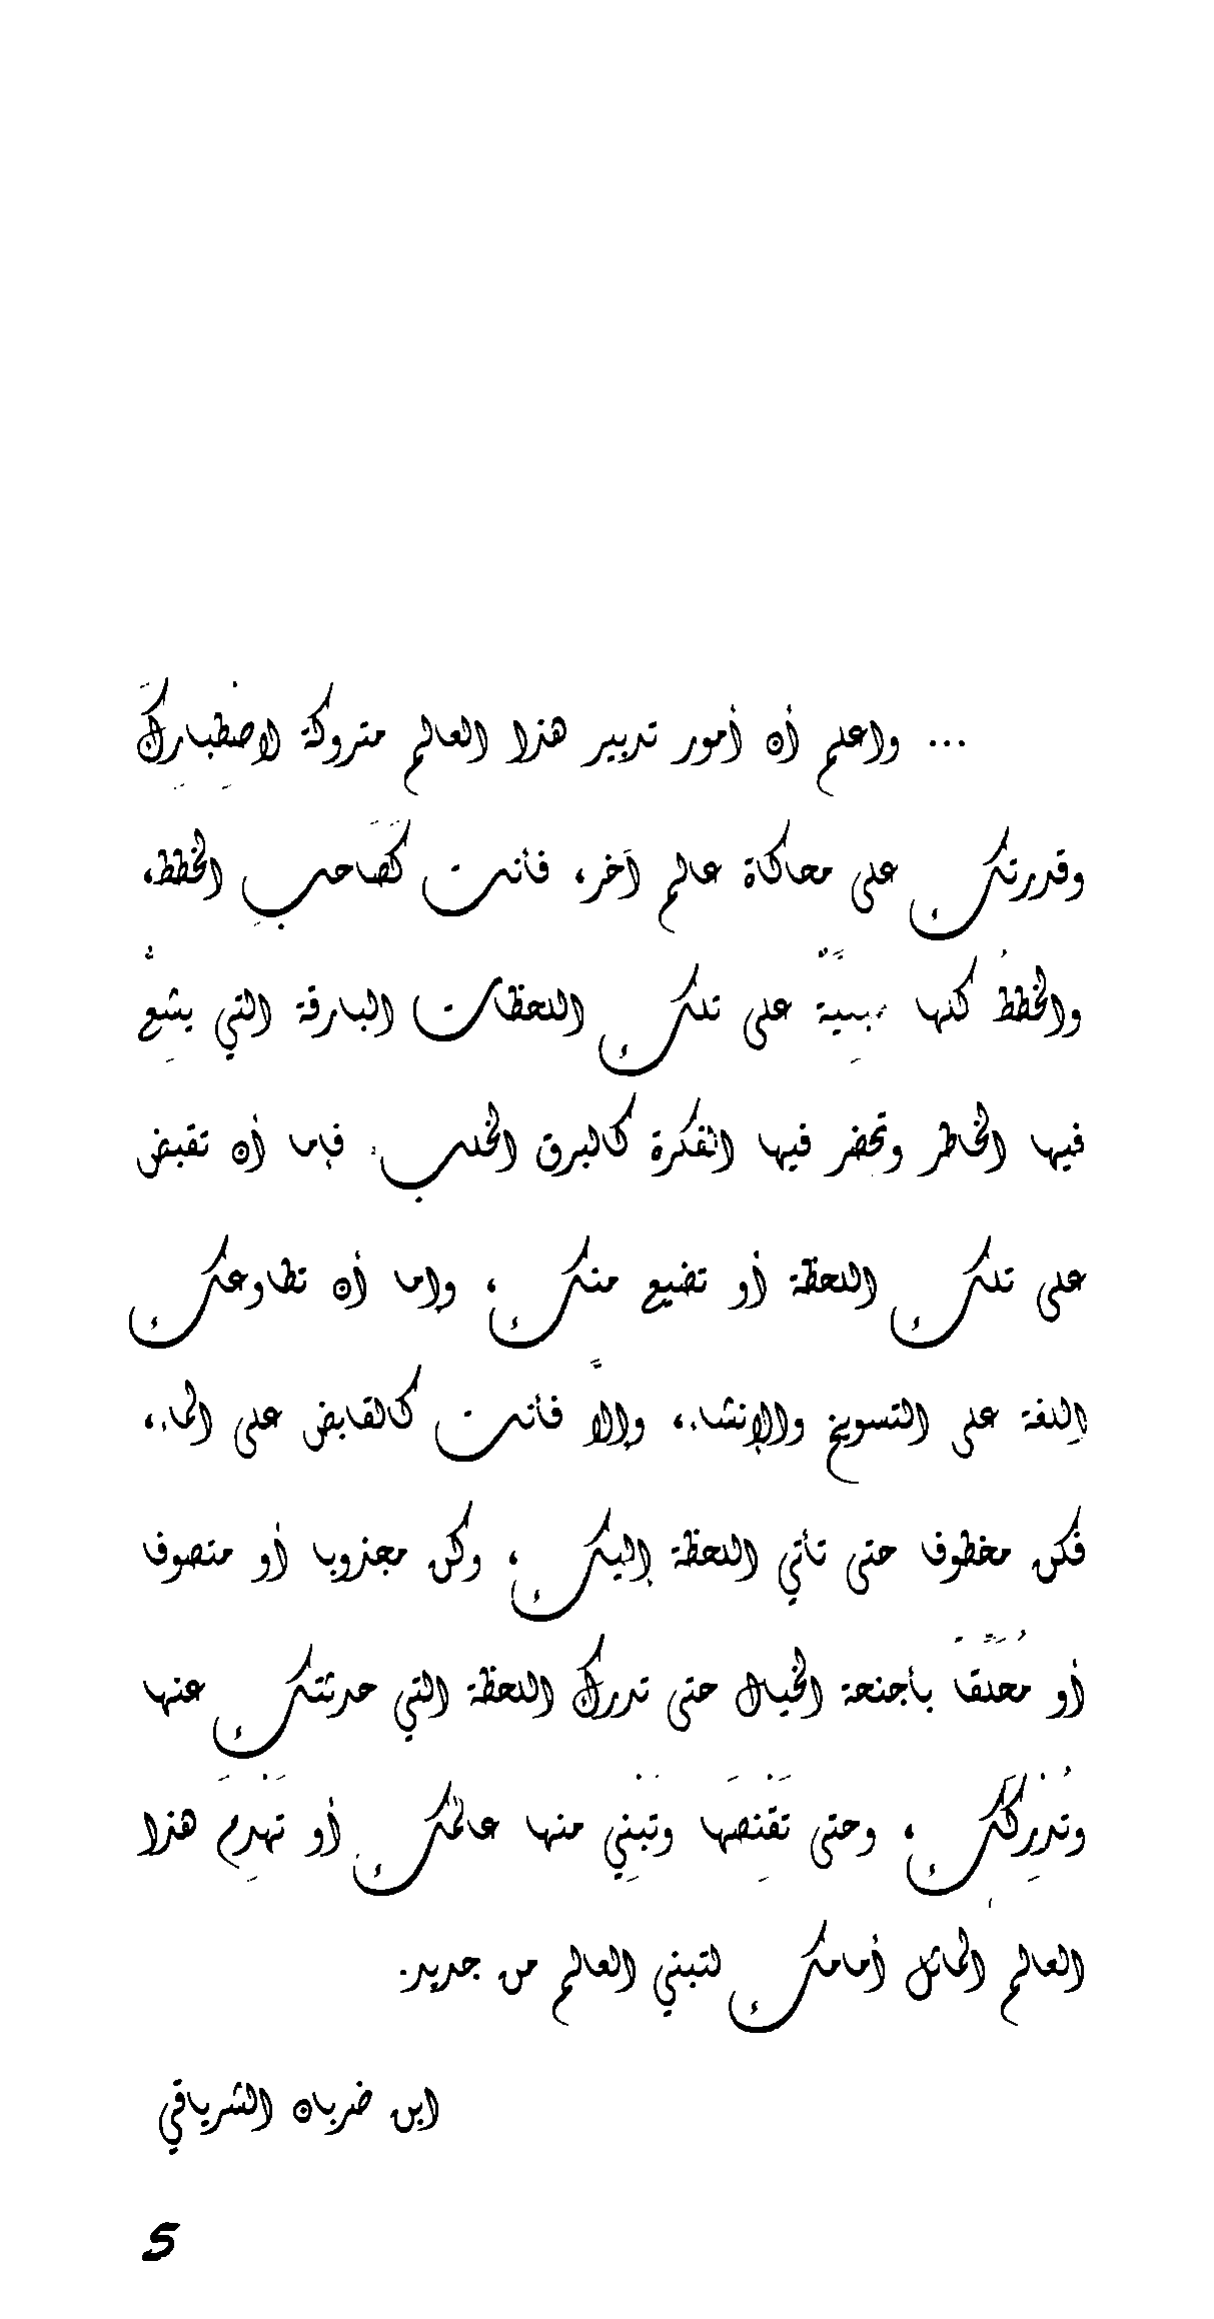 ... واعلم أن أمور تدبير هذا العالم متروكة لاصْطِبارِكَ
وقدرتك على محاكاة عالم آخر، فأنت كَصَاحبِ الخطط،
والخططُ كلها مبنِيَّةٌ على تلك اللحظات البارقة التي يشِعُّ
فيها الخاطر وتحضر فيها الفكرة كالبرق الخلب، فإما أن تقبض
على تلك اللحظة أو تضيع منك، وإما أن تطاوعك
اللغة على التسويخ والإنشاء، وإلاَّ فأنت كالقابض على الماء،
فكن مخطوف حتى تأتي اللحظة إليك، وكن مجذوبا أو متصوف
أو مُحَلِّقَ بأجنحة الخيال حتى تدرك اللحظة التي حدثتك عنها
وتُدْرِكَكَ، وحتى تَقْنِصَها وتَبْنِي منها عالمك أو تَهْدِمَ هذا
العالم الماثل أمامك لتبني العالم من جديد.
ابن ضربان الشرياقي
5